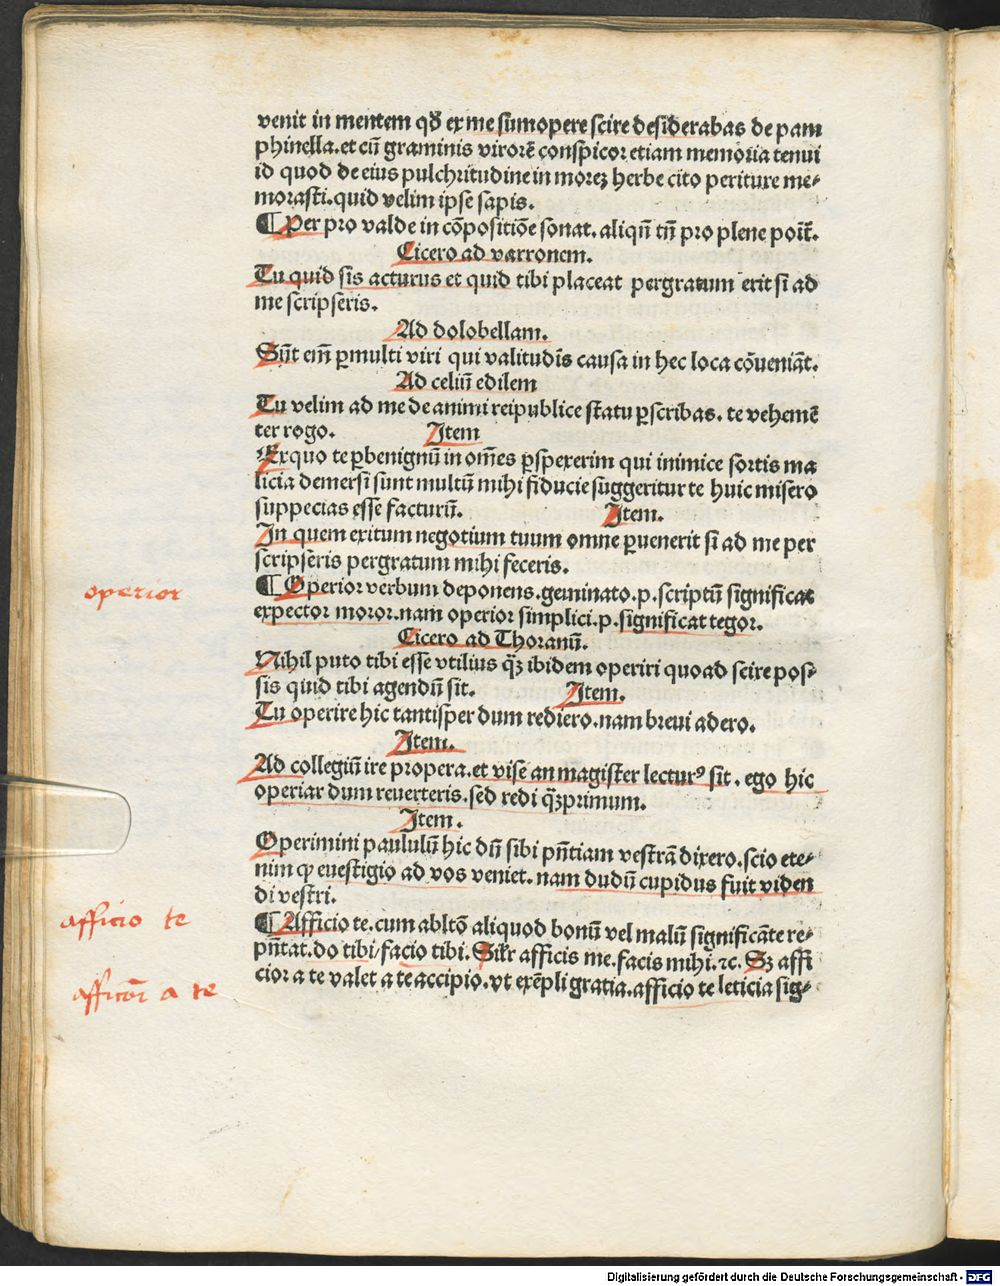 venit in mentem qđ ex me sumopere scire desiderabas de pam
phinella.et cū graminis virorē conspicor etiam memoria tenui
id quod de eius pulchritudine in moreꝫ herbe cito periture me⸗
morasti.quid velim ipse sapis.
¶ Per pro valde in cōpositiōe sonat.aliqñ tñ pro plene poit̄.
Cicero ad varronem.
Tu quid sis acturus et quid tibi placeat pergratum erit si ad
me scripseris.
Ad dolobellam.
Sūt em̄ ꝑmulti viri qui valitudīs causa in hec loca cōueniāt.
Ad celiū edilem
Tu velim ad me de animi reipublice statu ꝑscribas. te vehemē
ter rogo. Item
Ex quo te ꝑbenignū in om̄es ꝑspexerim qui inimice sortis ma
licia demersi sunt multū mihi fiducie suggeritur te huic misero
suppecias esse facturū. Item.
In quem exitum negotium tuum omne ꝑuenerit si ad me per
scripseris pergratum mihi feceris.
operior
¶ Operior verbum deponens.geminato.p.scriptū significat
expector moror.nam operior simplici.p.significat tegor.
Cicero ad Thoranū.
Nihil puto tibi esse vtilius qꝫ̄ ibidem operiri quoad scire pos⸗
sis quid tibi agendū sit. Item.
Tu operire hic tantisper dum rediero.nam breui adero.
Item.
Ad collegiū ire propera.et vise an magister lecturꝰ sit. ego hic
operiar dum reuerteris.sed redi qꝫ̄primum.
Item.
Operimini paululū hic dū sibi pñtiam vestrā dixero.scio ete⸗
nim ꝙ euestigio ad vos veniet. nam dudū cupidus fuit viden
di vestri.
afficio te
¶ Afficio te.cum abltō aliquod bonū vel malū significāte re⸗
pñtat.do tibi/facio tibi.Silr̄ afficis me.facis mihi.⁊c. Sꝫ affi
afficior a te
cior a te valet a te accipio.vt exēpli gratia.afficio te leticia sig⸗
Digitalisierung gefördert durch die Deutsche Forschungsgemeinschaft - DFG